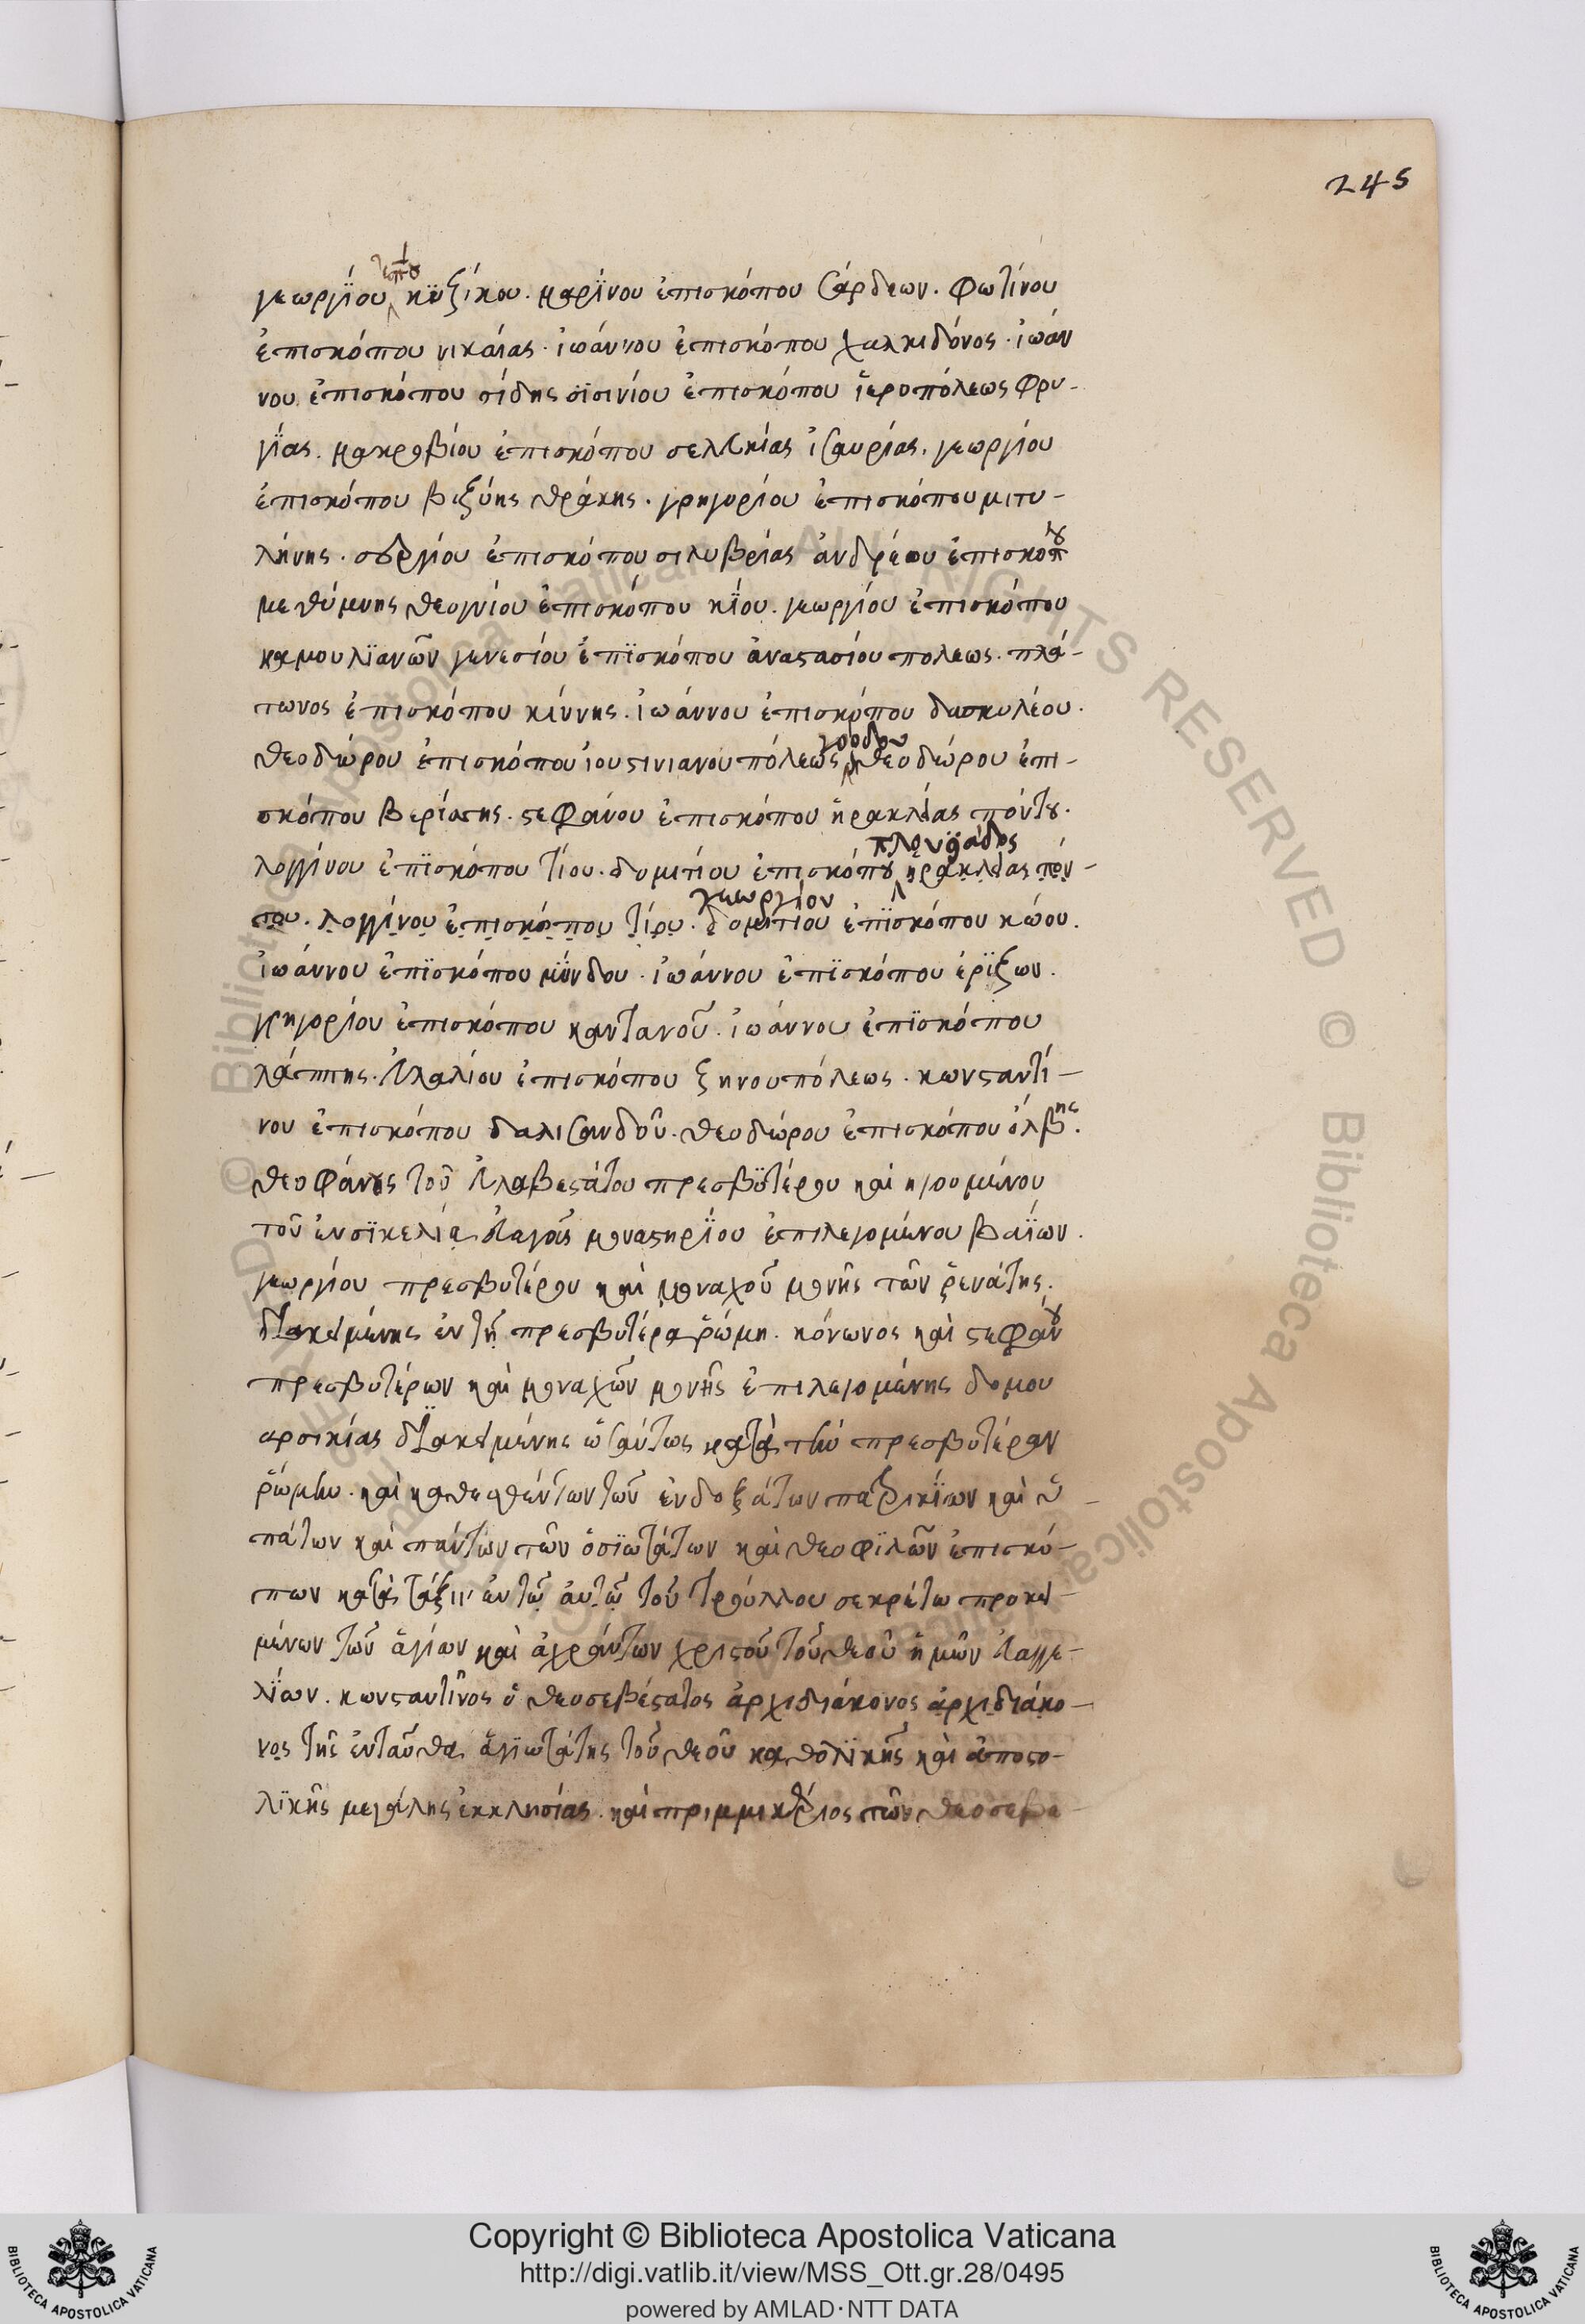 245
ἐπισκόπου
γεωργίου κυζίκου. μαρίνου ἐπισκόπου σάρδεων. φωτίνου
ἐπισκόπου νικαίας. ἰωάννου ἐπισκόπου χαλκιδόνος. ἰωάν
νου ἐπισκόπου σίδης σϊσινίου ἐπισκόπου ἱεροπόλεως φρυ-
γίας. μακροβίου ἐπισκόπου σελευκίας ἰσαυρίας. γεωργίου
ἐπισκόπου βιζύης θράκης. γρηγορίου ἐπισκόπου μιτυ-
λήνης. σεργίου ἐπισκόπου σιλυβρίας ἀνδρέου ἐπισκόπου
μεθύμνης θεογνίου ἐπισκόπου κΐου. γεωργίου ἐπισκόπου
καμουλϊανῶν γενεσίου ἐπϊσκόπου ἀναστασίου πολεως. πλά-
τωνος ἐπισκόπου κίννης. ἰωάννου ἐπισκόπου δασκυλέου.
γορδου
θεοδώρου ἐπισκόπου ἰουστινιανουπόλεως θεοδώρου ἐπι-
σκόπου βερίσσης. στεφάνου ἐπισκόπου ἡρακλείας πόντου.
πλουϊάδος
λογγίνου ἐπϊσκόπου τίου. δομιτίου ἐπισκόπου ηρακλείας πόν-
γεωργίου
του. λογγίνου ἐπισκόπου τίρυ. δομιτιου ἐπϊσκόπου κώου.
ἰωάννου ἐπϊσκόπου μΰνδου. ἰωάννου ἐπϊσκόπου ἐρϊζων.
γρηγορίου ἐπισκόπου καντανοῦ. ἰωάννου ἐπϊσκόπου
λάππης. εὐλαλίου ἐπισκόπου ζηνουπόλεως. κωνσταντί-
νου ἐπισκόπου δαλισανδοῦ. θεοδώρου ἐπισκόπου ὄλβης.
θεοφάνους τοῦ εὐλαβεστάτου πρεσβϋτέρου καὶ ηγουμένου
τοῦ ἐν σϊκελία εὐαγοῦς μοναστηρΐου ἐπιλεγομένου βαΐων.
γεωργίου πρεσβυτέρου καὶ μοναχοῦ μονῆς τῶν ῥενάτης.
διακειμένης ἐν τῇ πρεσβυτέρα ῥώμη. κόνωνος καὶ στεφάνου
πρεσβυτέρων καὶ μοναχῶν μονῆς ἐπιλεγομένης δομου
αρσικίας διακειμένης ὡσαύτως κατὰ τὴν πρεσβυτέραν
ῥώμην. καὶ καθεσθέντων τῶν ἐνδοξάτων πατρικΐων καὶ ὑ-
πάτων καὶ πάντων τῶν ὁσϊωτάτων καὶ θεοφϊλῶν ἐπισκό-
πων κατὰ τάξιν ἐν τῷ ἀυτῷ τοῦ τρούλλου σεκρέτω προκει-
μένων τῶν ἁγίων καὶ ἀχράντων χριστοῦ τοῦ θεοῦ ἡμῶν εὐαγγε-
λΐων. κωνσταντῖνος ὁ θεοσεβέστατος ἀρχιδιάκονος ἀρχιδιάκο-
νος τῆς ἐνταῦθα ἁγϊωτάτης τοῦ θεοῦ καθολϊκῆς καὶ ἀποστο-
λϊκῆς μεγάλης ἐκκλησίας. καὶ πριμμικήριος τῶν θεοσεβε-
Copyright © Biblioteca Apostolica Vaticana
http://digi.vatlib.it/view/MSS_Ott.gr.28/0495
powered by AMLAD · NTT DATA